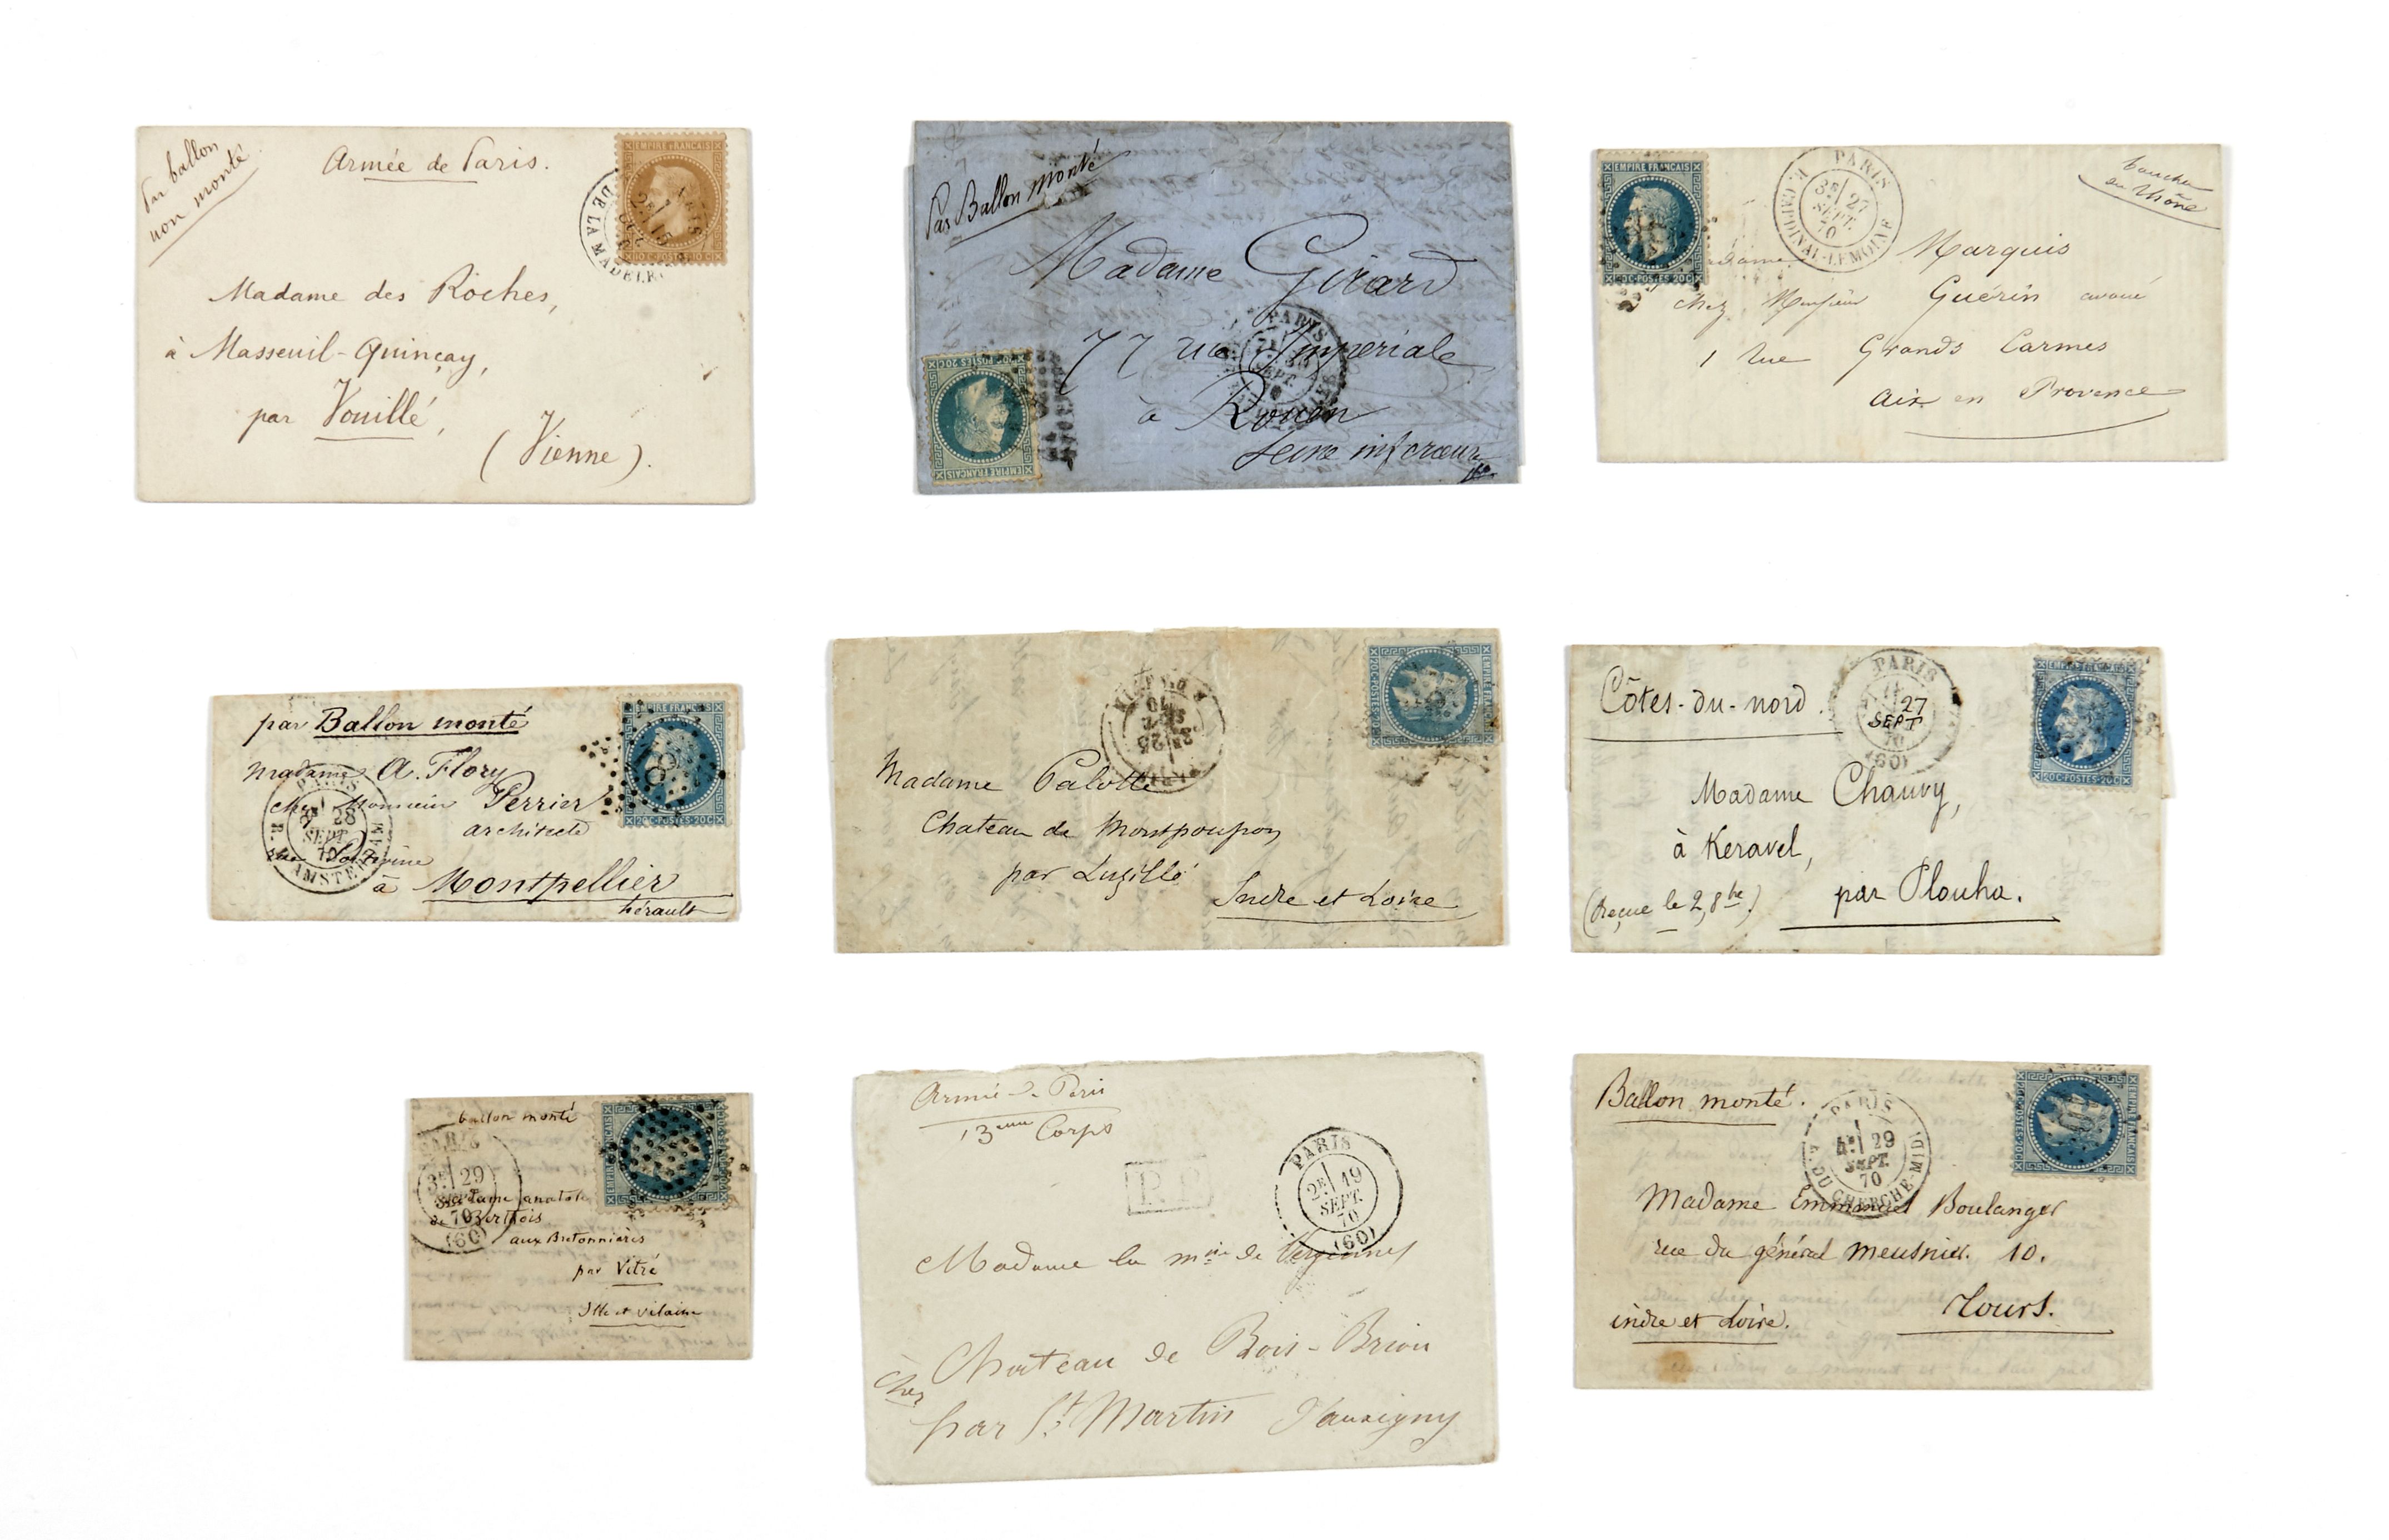 Par ballon
non monté
Armée de Paris.
EMPIRE FRANÇAIS
10 C·POSTES·10 C
DE LA MADELE
Madame des Roches,
à Masseuil-Quinçay,
par Vouillé,
(Vienne).
Par Ballon monté
Madame Girard
PARIS
SEPT.
77 rue Impériale
à Rouen
Seine inférieur
EMPIRE FRANÇAIS
POSTES 20C
EMPIRE FRANÇAIS
20C·POSTES·20C
PARIS
3E 27
SEPT.
70
R. CARDINAL-LEMOINE
bouches
du Rhône
Madame Marquis
chez Monsieur Guérin avoué
1 Rue Grands Carmes
Aix en Provence
par Ballon monté
EMPIRE FRANÇAIS
20C·POSTES·20C
Madame A. Flory
chez Monsieur Perrier
architecte
PARIS
28
SEPT.
70
R. D'AMSTERDAM
à Montpellier
hérault
EMPIRE FRANÇAIS
20C·POSTES
2E 25
SEPT.
70
Madame Palotte
Chateau de Montpoupon
par Luzillé
Indre et Loire
Côtes-du-nord.
PARIS
27
SEPT
70
(60)
EMPIRE FRANÇAIS
20C·POSTES·20C
Madame Chauvy,
à Keravel,
(Reçue le 2, 8bre)
par Plouha.
ballon monté
PARIS
3E 29
SEPT.
70
(60)
EMPIRE FRANÇAIS
Madame anatole
de Berthois
aux Bretonnières
par Vitré
Ille et vilaine
Armée de Paris
13eme Corps
P.P.
PARIS
2E 19
SEPT.
70
(60)
Madame la mise de Vergennes
Chateau de Bois-Briou
par St Martin d'auxigny
Cher
Ballon monté.
PARIS
4E 29
SEPT.
70
R. DU CHERCHE-MIDI
EMPIRE FRANÇAIS
20C·POSTES·20C
Madame Emmanuel Boulanger
rue du général Meusnier. 10.
Tours.
indre et Loire.